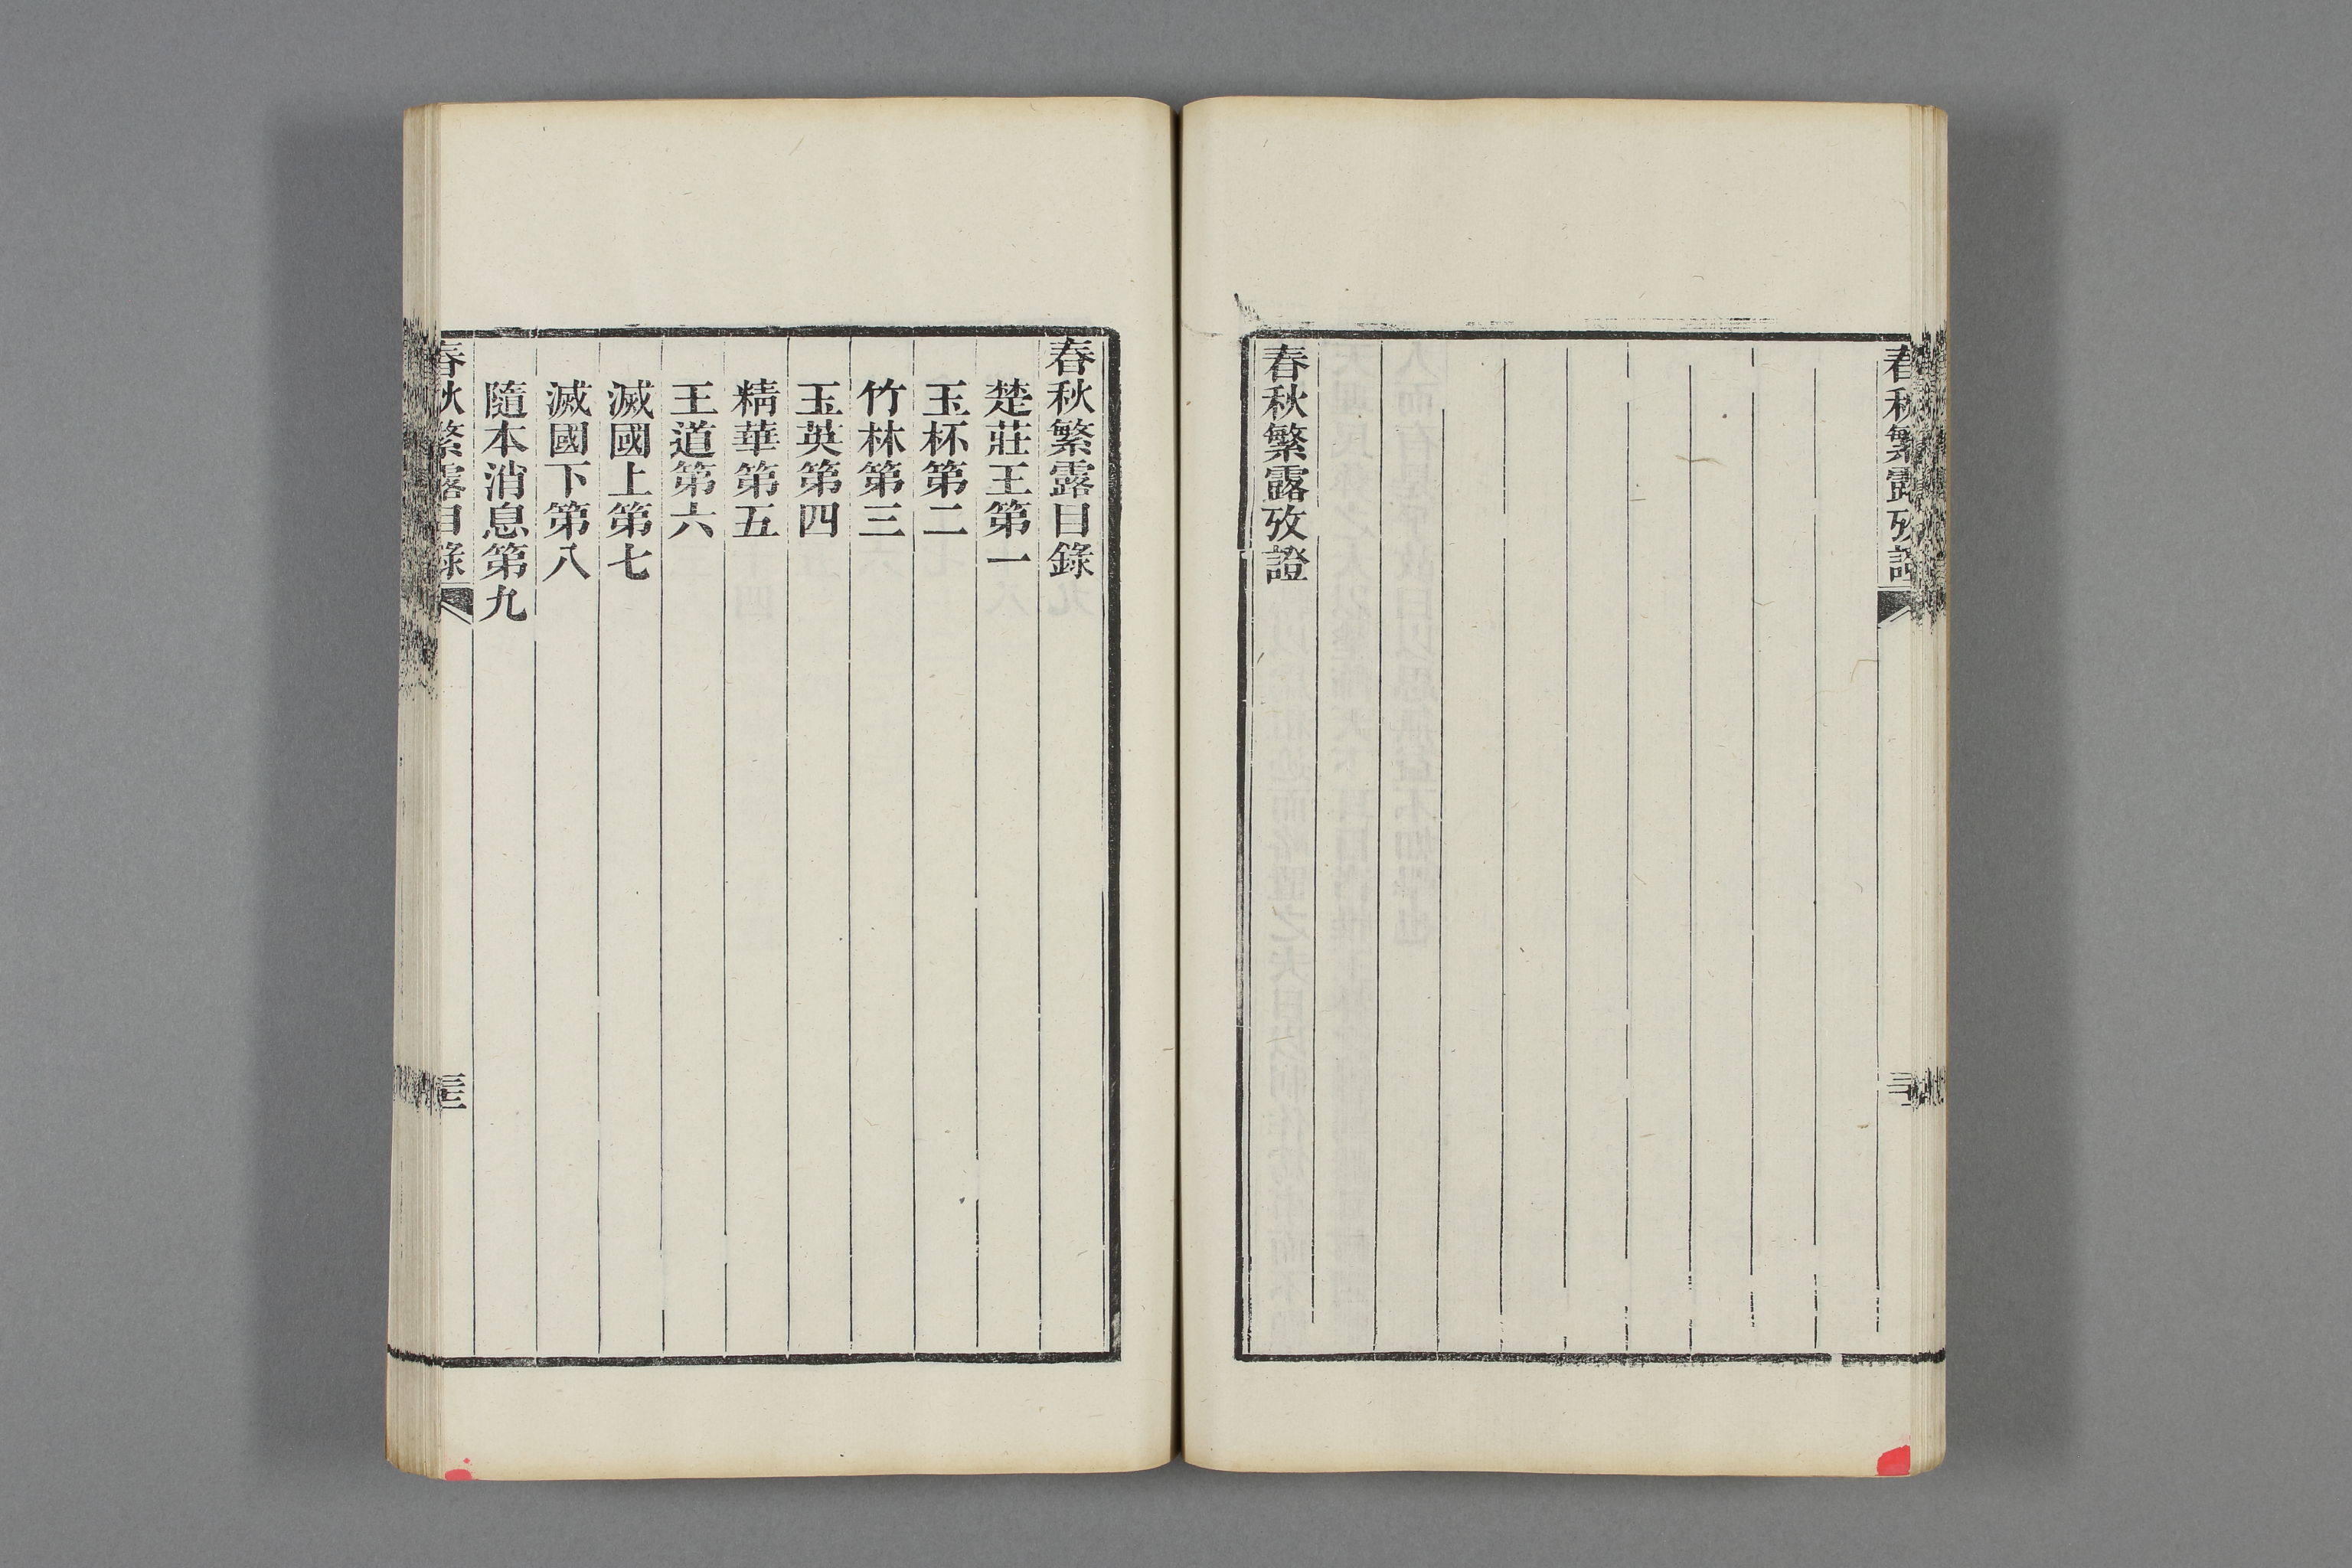 春秋繁露攷證
春秋繁露攷證
春秋繁露目錄
楚莊王第一
玉杯第二
竹林第三
玉英第四
精華第五
王道第六
滅國上第七
滅國下第八
隨本消息第九
春秋繁露目錄